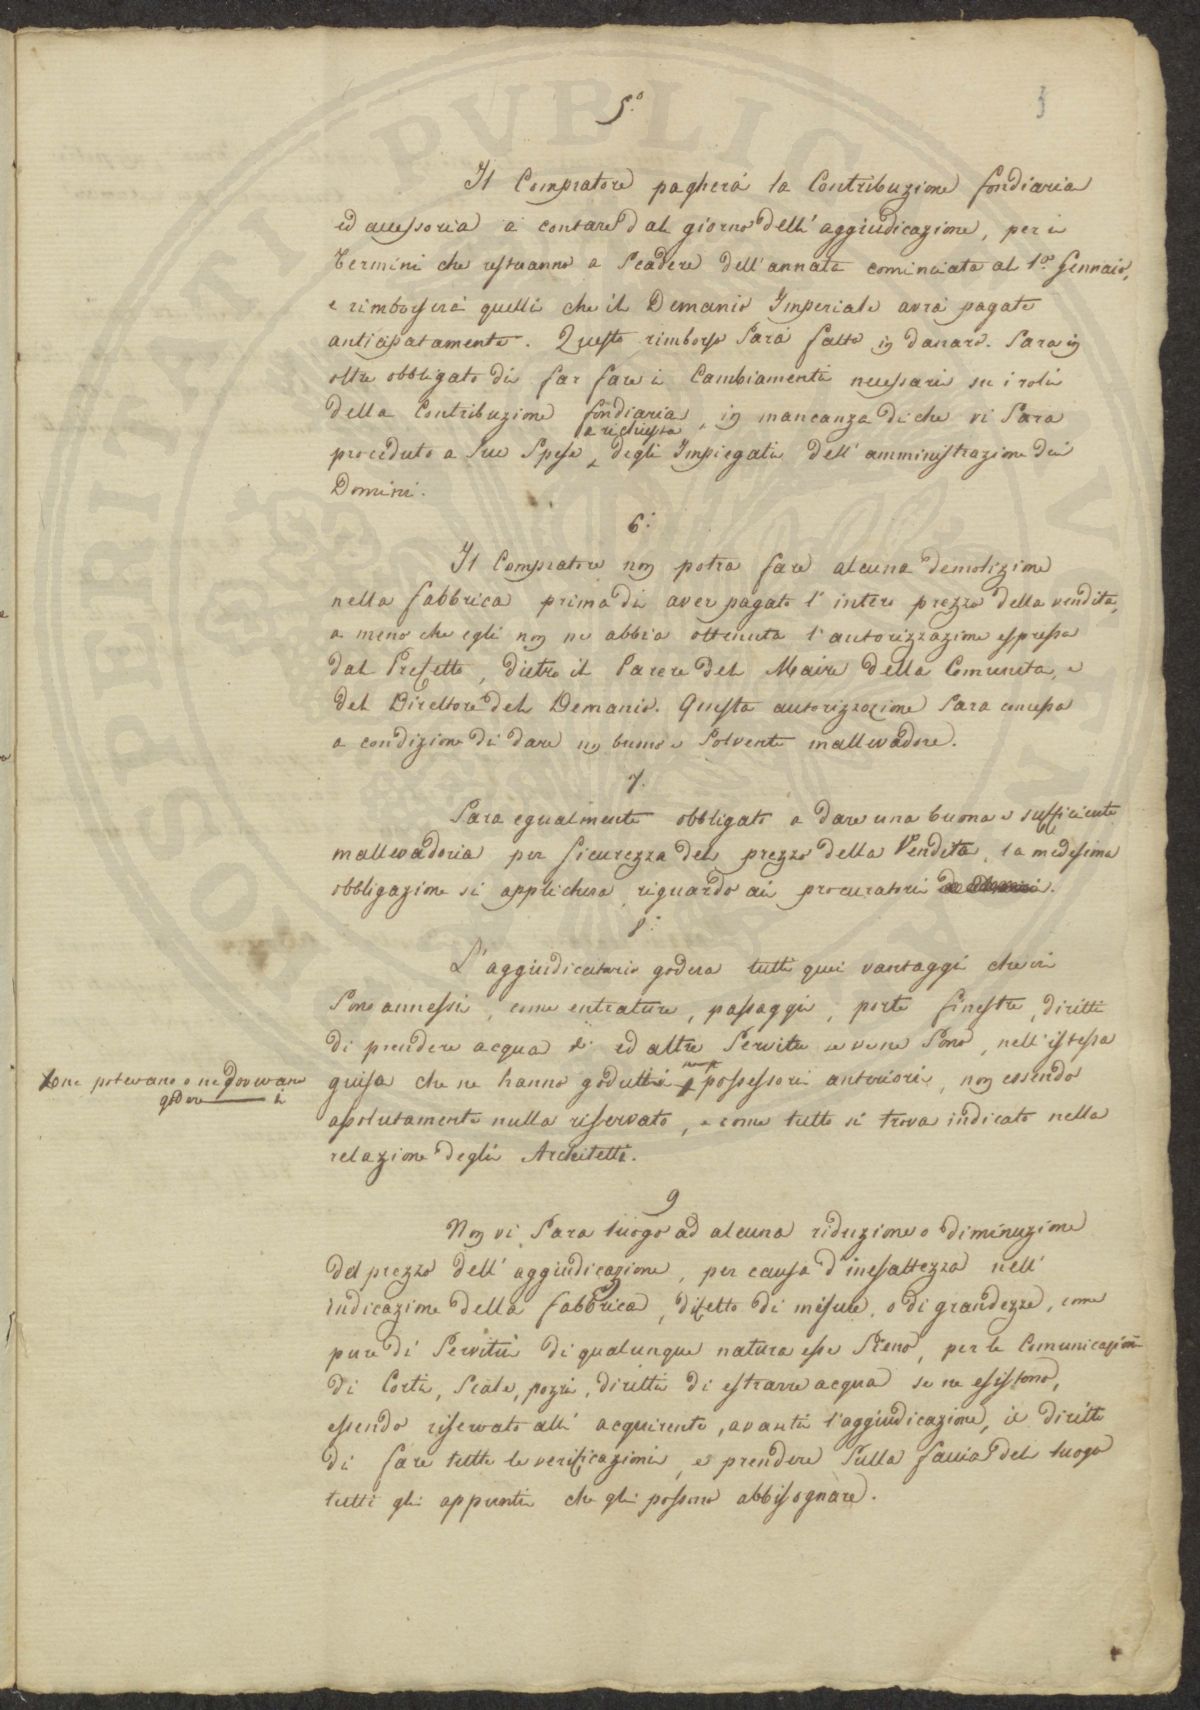 5.o
3
Il Compratore pagherà la Contribuzione fondiaria
ed accessoria a contare dal giorno dell' aggiudicazione, per i
termini che restranno a scadere dell' annata cominciata al 1.o Gennaio,
e rimborserà quelli che il Demanio Imperiale avrà pagate
anticipatamente. Questo rimborso sarà fatto in danaro. Sara in
oltre obbligato di far fare i Cambiamenti necessari su i roli
della Contribuzione fondiaria, in mancanza di che vi sara
a richiesta
proceduto a sue spese degli Impiegati dell' amministrazione dei
Domini.
6.
Il Compratore non potra fare alcuna demolizione
nella fabbrica prima di aver pagato l' intero prezzo della vendita,
a meno che egli non ne abbia ottenuta l' autorizzazione espressa
dal Prefetto, dietro il parere del Maire della Comunita, e
del Direttore del Demanio. Questa autorizzazione sara concessa
a condizione di dare un buono e solvente mallevadore.
7.
Sara egualmente obbligato a dare una buona e sufficiente
mallevadoria per sicurezza del prezzo della Vendita, la medesima
obbligazione si applichera riguardo ai procuratori
8.
L' aggiudicatario godera tutti quei vantaggi che vi
sono annessi, come entrature, passaggi, porte finestre, diritti
di prendere acqua ed altre servitu se ve ne sono, nell' istessa
guisa che ne hanno goduto i possessori anteriori, non essendo
one potevano o ne dovevano
godere i
assolutamente nulla riservato, e come tutto si trova indicato nella
relazione degli Architetti.
9
Non vi sara luogo ad alcuna riduzione o diminuzione
del prezzo dell' aggiudicazione, per causa d' inesattezza nell'
indicazione della fabbrica, difetto di misure, o di grandezze, come
pure di servitù di qualunque natura esse sieno, per le Comunicazioni
di Corti, scale, pozzi, diritti di estrarre acqua se ne esistono,
essendo riservato all' acquirente, avanti l' aggiudicazione, il diritto
di fare tutte le verificazioni, e prendere sulla faccia del luogo
tutti gli appunti che gli possono abbisognare.